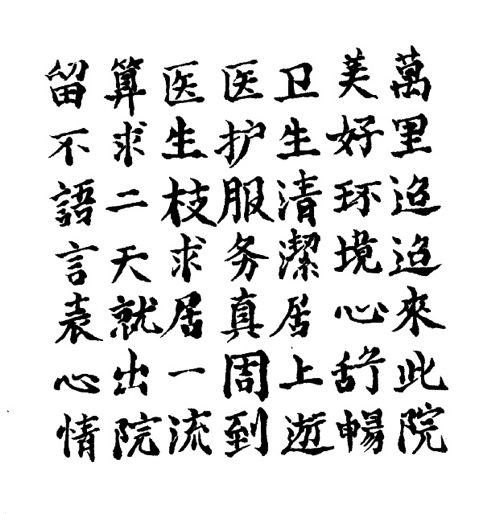 萬里迢迢來此院
美好环境心舒暢
卫生清潔居上遊
医护服务真周到
医生枝求居一流
算求二天就出院
留不語言表心情